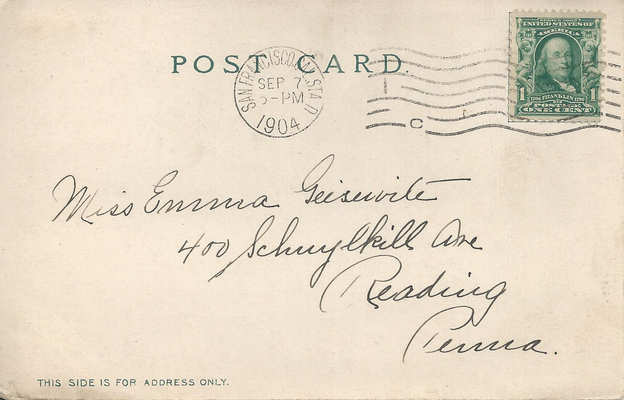 POST CARD.
SAN FRANCISCO, CAL. STA. D
SEP 7
5-PM
1904
C
SERIES 1902
UNITED STATES OF
AMERICA
1 1790 FRANKLIN 1790 1
POSTAGE
ONE CENT
Miss Emma Geisewite
400 Schuylkill Ave
Reading
Penna.
THIS SIDE IS FOR ADDRESS ONLY.